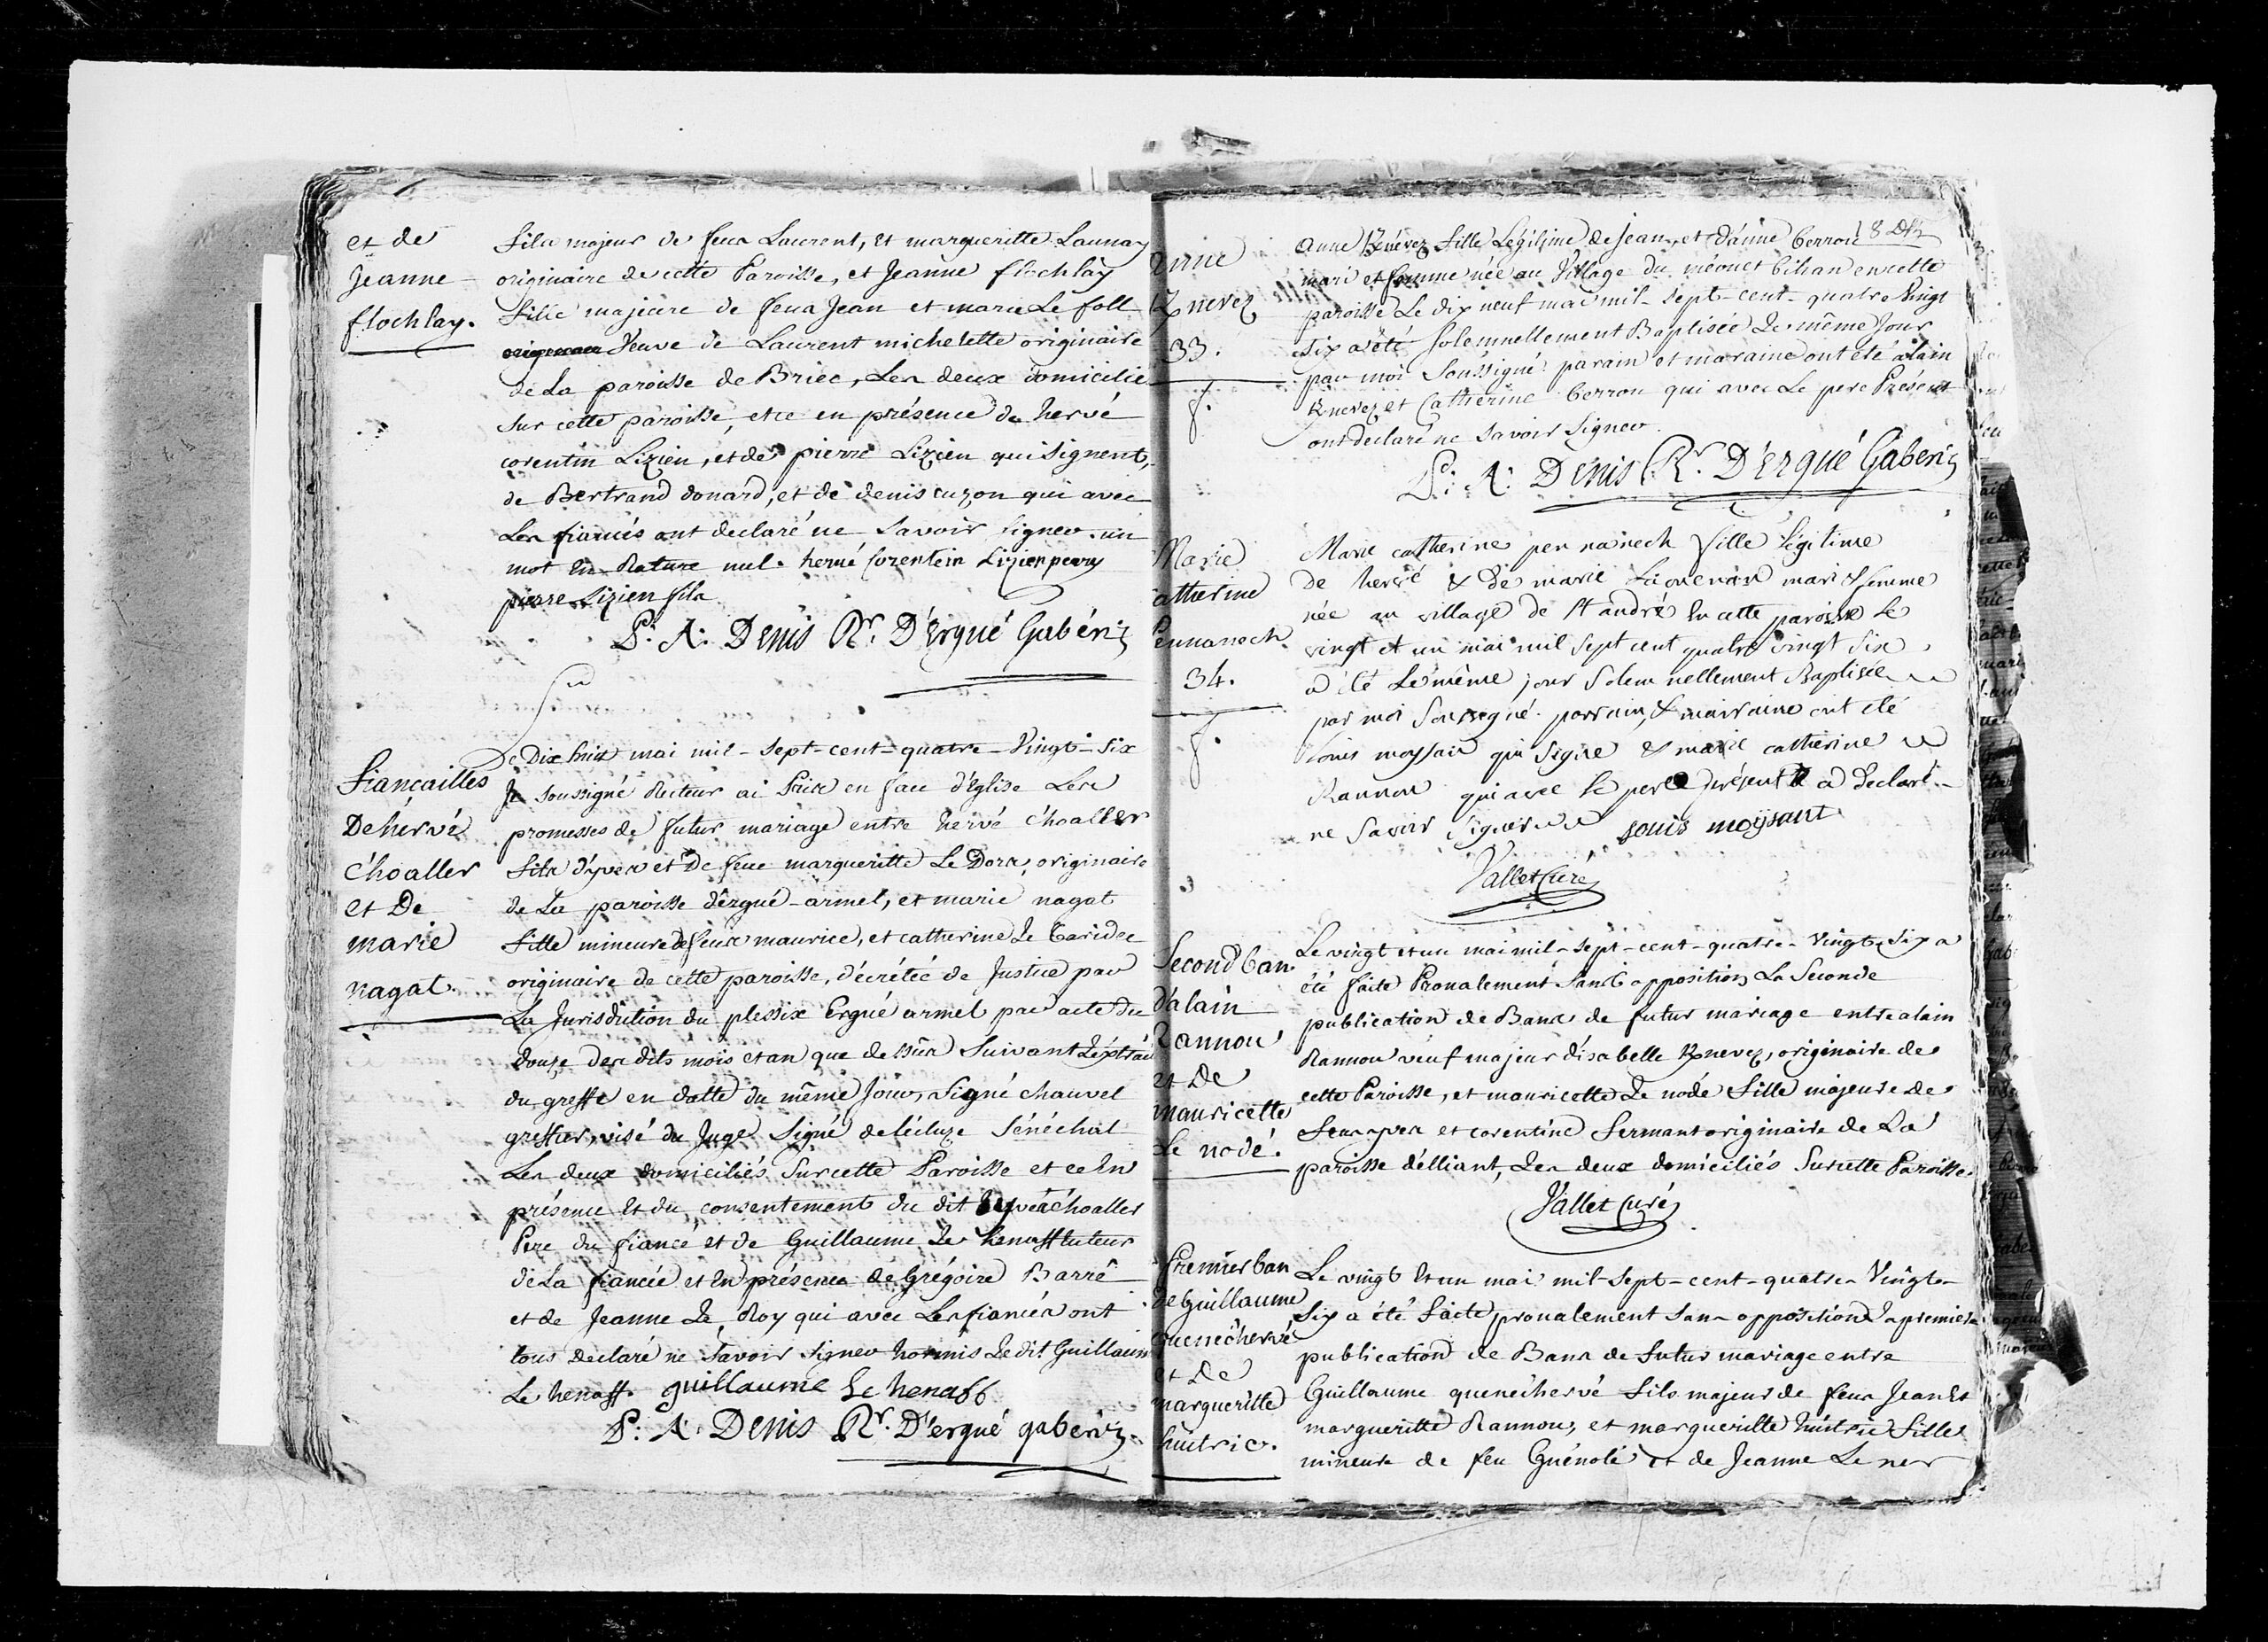 et de
Jeanne
flochlay.
fils majeur de feux Laurent, et margueritte Launay
originaire de cette Paroisse, et Jeanne flochlay
fille majeure de feux Jean et marie Le foll
Veuve de Laurent michelette originaire
de La paroisse de Briec, Les deux domiciliés
sur cette paroisse, et ce en présence de hervé
corentin Lizien, et de pierre Lizien qui signent,
de Bertrand donard, et de denis cuzon qui avec
Les fiancés ont declaré ne Savoir signer. un
mot En Rature nul. hervé Corentein Lizien
pierre Lizien fils
P: A: Denis Rr. D'Ergué Gabéric
fiançailles
De hervé
C'hoaller
et De
marie
nagat.
Le Dix huit mai mil-sept-cent-quatre-Vingt-Six
Je soussigné Recteur ai Pris en face d'Eglise Les
promesses de futur mariage entre hervé C'hoaller
fils d'yves et De feue margueritte Le Dorx, originaire
de La paroisse d'ergué-armel, et marie nagat
fille mineure de feux maurice, et catherine Le Caridec
originaire de cette paroisse, décrétée de Justice par
La Jurisdiction du plessix Ergué armel par acte du
douze des dits mois et an que dessus Suivant L'extrai
du greffe en datte du même Jour, Signé chauvel
greffier, visé du Juge Signé deLécluze Sénéchal
Les deux domiciliés Sur cette Paroisse et ce En
présence Et du consentement du dit yves C'hoaller
Pere du fiancé et de Guillaume Le henaff tuteur
de La fiancée et En présence de Grégoire Barré
et de Jeanne Le Roy qui avec Les fiancés ont
tous declaré ne Savoir Signer hormis Le dit Guillaum
Le henaff. guillaume le henaff
P: A: Denis Rr. D'ergué gabéric.
anne
Knevez
33.
f.
8 D
anne Knévez fille Légitime de Jean, et d'anne Berrou
mari et femme née au Village du méouet bihan en cette
paroisse Le dix neuf mai mil-sept-cent-quatre Vingt
Six a été solemnellement Baptisée Le même Jour
par moi Soussigné parain et maraine ont été alain
Knevez et Catherine berrou qui avec Le pere Présent
ont declaré ne Savoir Signer.
P: A: Denis Rr. D'Ergué Gaberic
Marie
catherine
Pennanech.
34.
f.
Marie catherine pennanech fille légitime
de hervé & de marie mari & femme
née au village de St andré En cette paroisse Le
vingt et un mai mil sept cent quatre vingt Six
a été Le même jour Solemnellement Baptisée
par moi Soussigné. parrain, & marraine ont été
Louis moysan qui Signe & marie catherine
Rannou qui avec le pere présent a déclaré
ne Savoir Signer louis moÿsant
Vallet Curé
Second ban
d'alain
Rannou
et De
mauricette
Le nodé.
Le vingt et un mai mil-sept-cent-quatre-Vingt-Six a
été faite Pronalement Sans opposition La Seconde
publication de Bans de futur mariage entre alain
Rannou veuf majeur d'isabelle Knevez, originaire de
cette Paroisse, et mauricette Le nodé fille majeure de
feux yves et corentine fermant originaire de La
paroisse d'elliant, Les deux domiciliés Sur cette Paroisse.
Vallet Curé
Premier ban
de Guillaume
quenec'hervé
et De
margueritte
huitric.
Le vingt Et un mai mil-sept-cent-quatre-Vingt-
Six a été faite pronalement Sans opposition La premiere
publication de Bans de futur mariage entre
Guillaume quenec'hervé fils majeur de feux Jean Et
margueritte Rannou, et margueritte huitric fille
mineure de feu Guénolé et de Jeanne Le ner